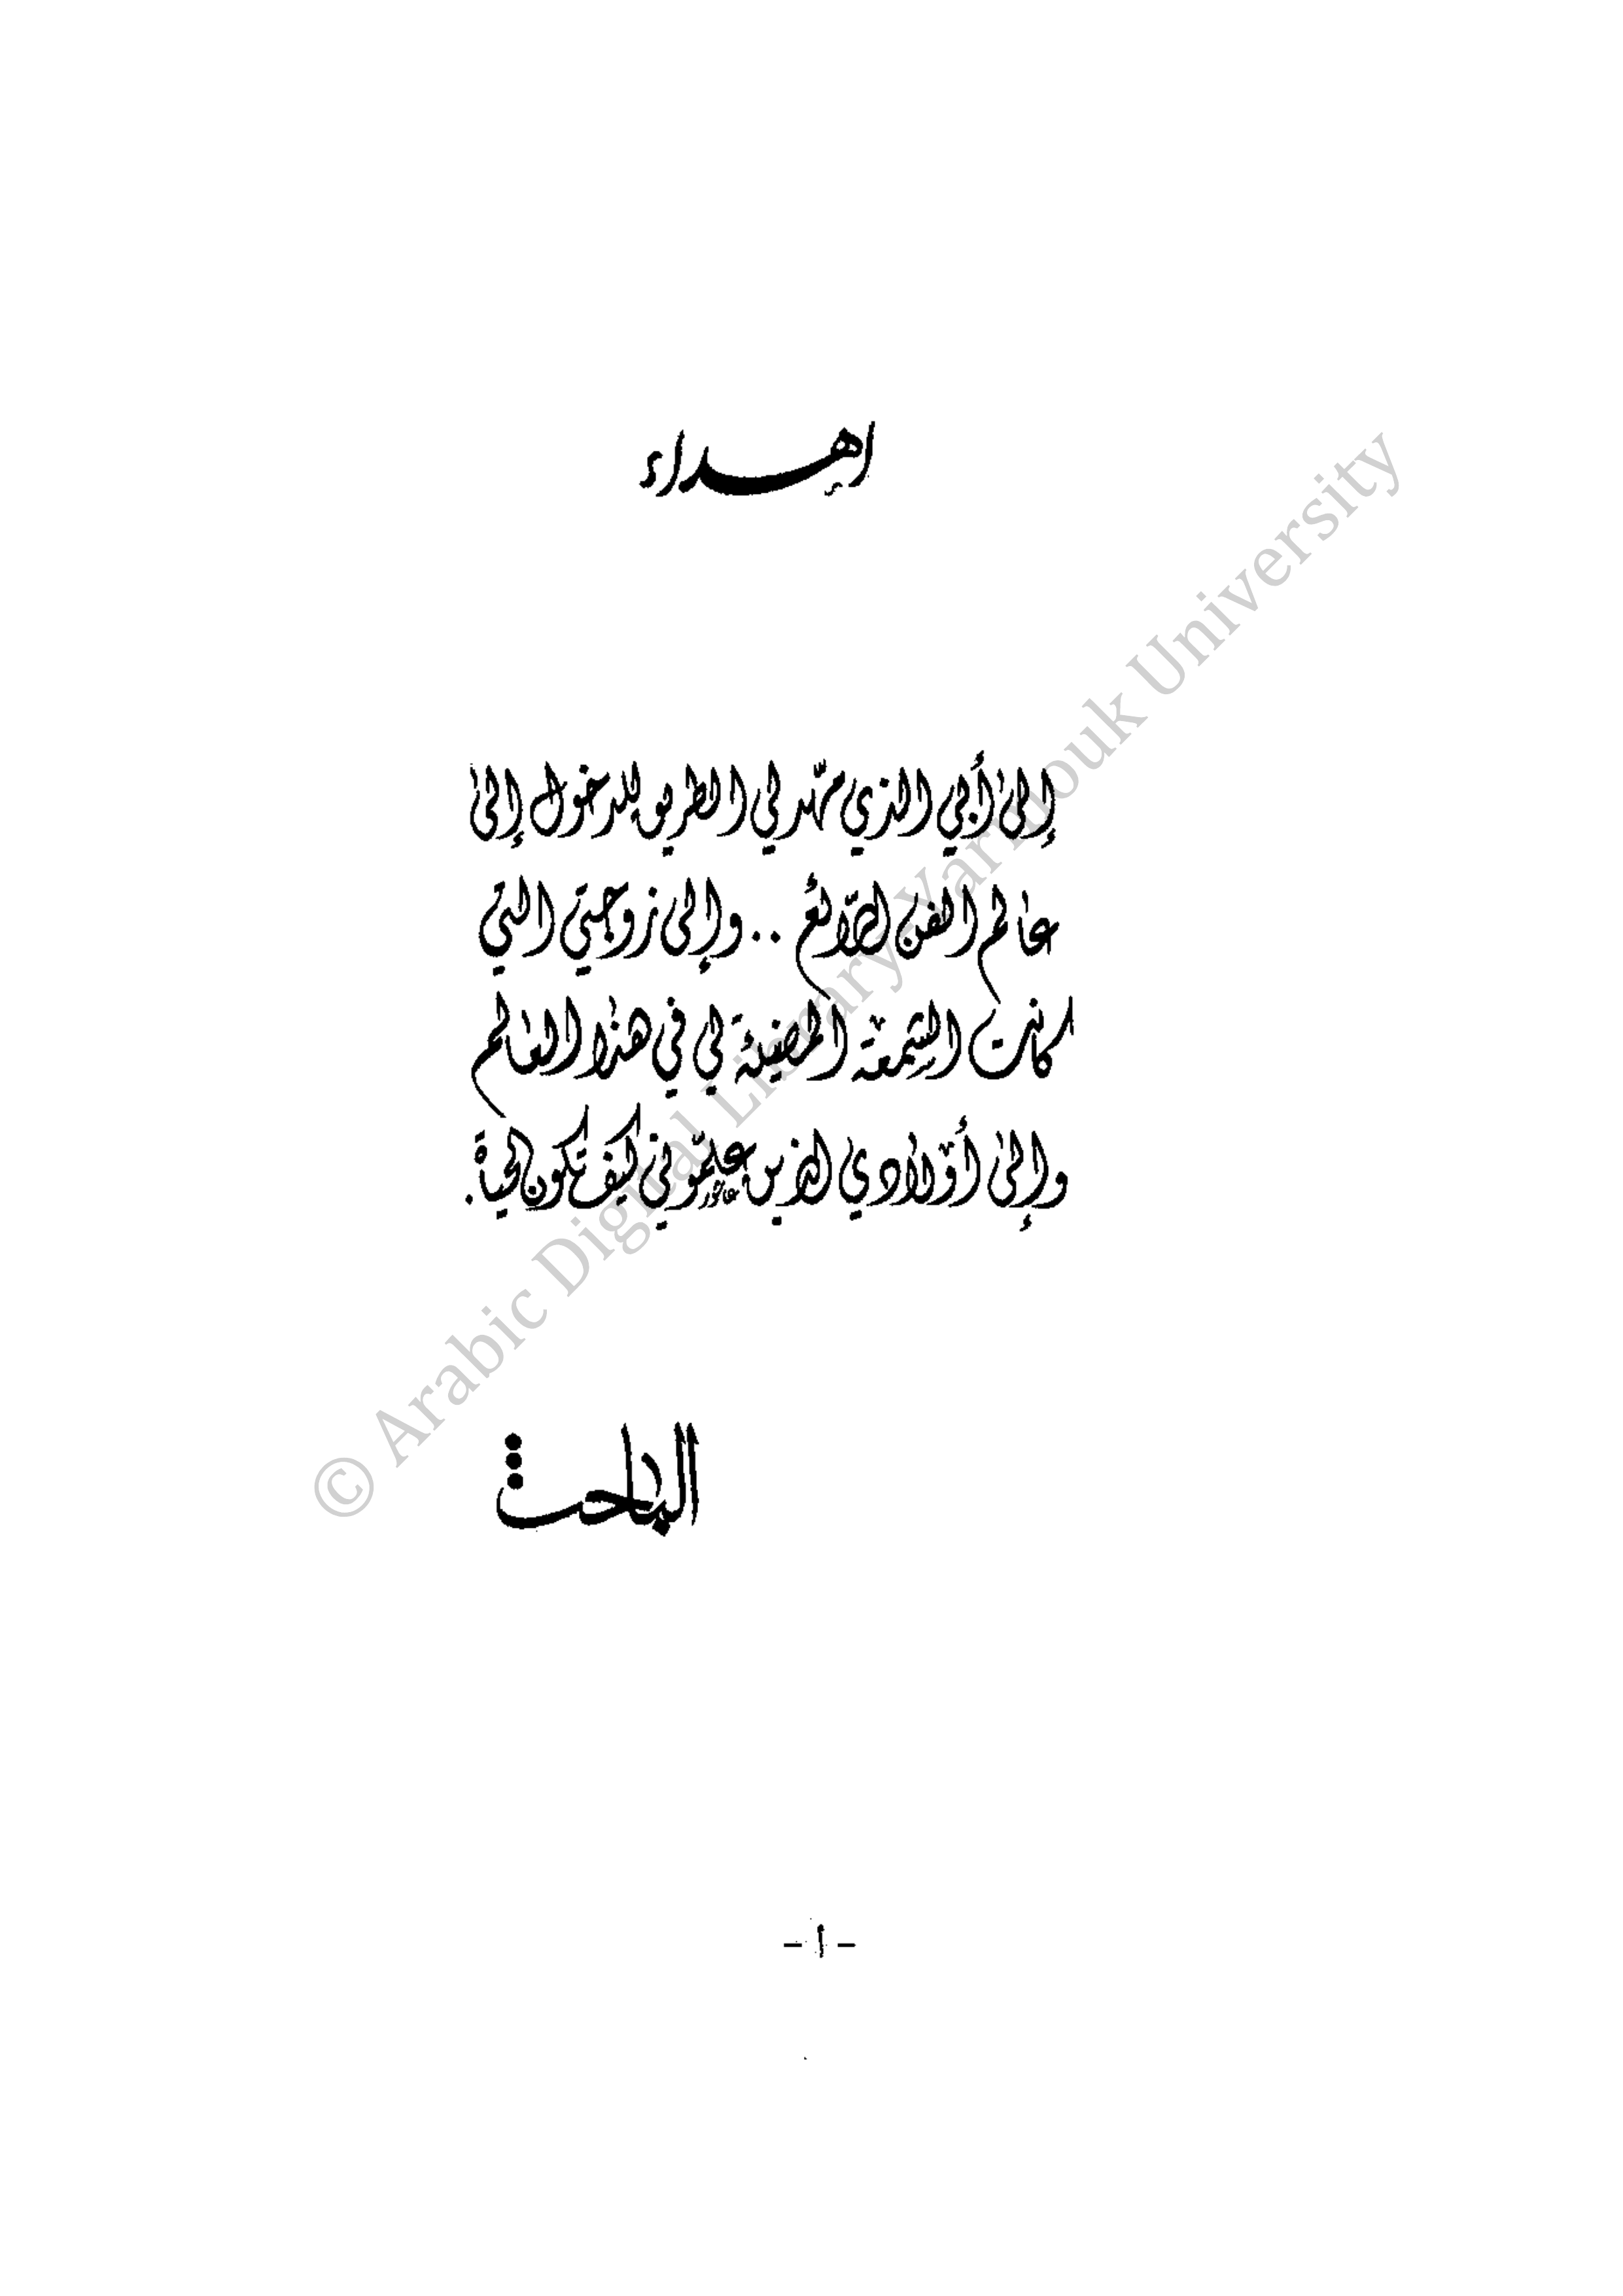 إهداء
إلى أبي الذي مهّد لي الطريق للدخول إلى
عالم الفن الرائع .. وإلى زوجتي التي
كانت الشمعة المضيئة لي في هذا العالم
وإلى أولادي الذين علّموني كيف تكون الحياة.
الباحث
- أ -
© Arabic Digital Library-Yarmouk University